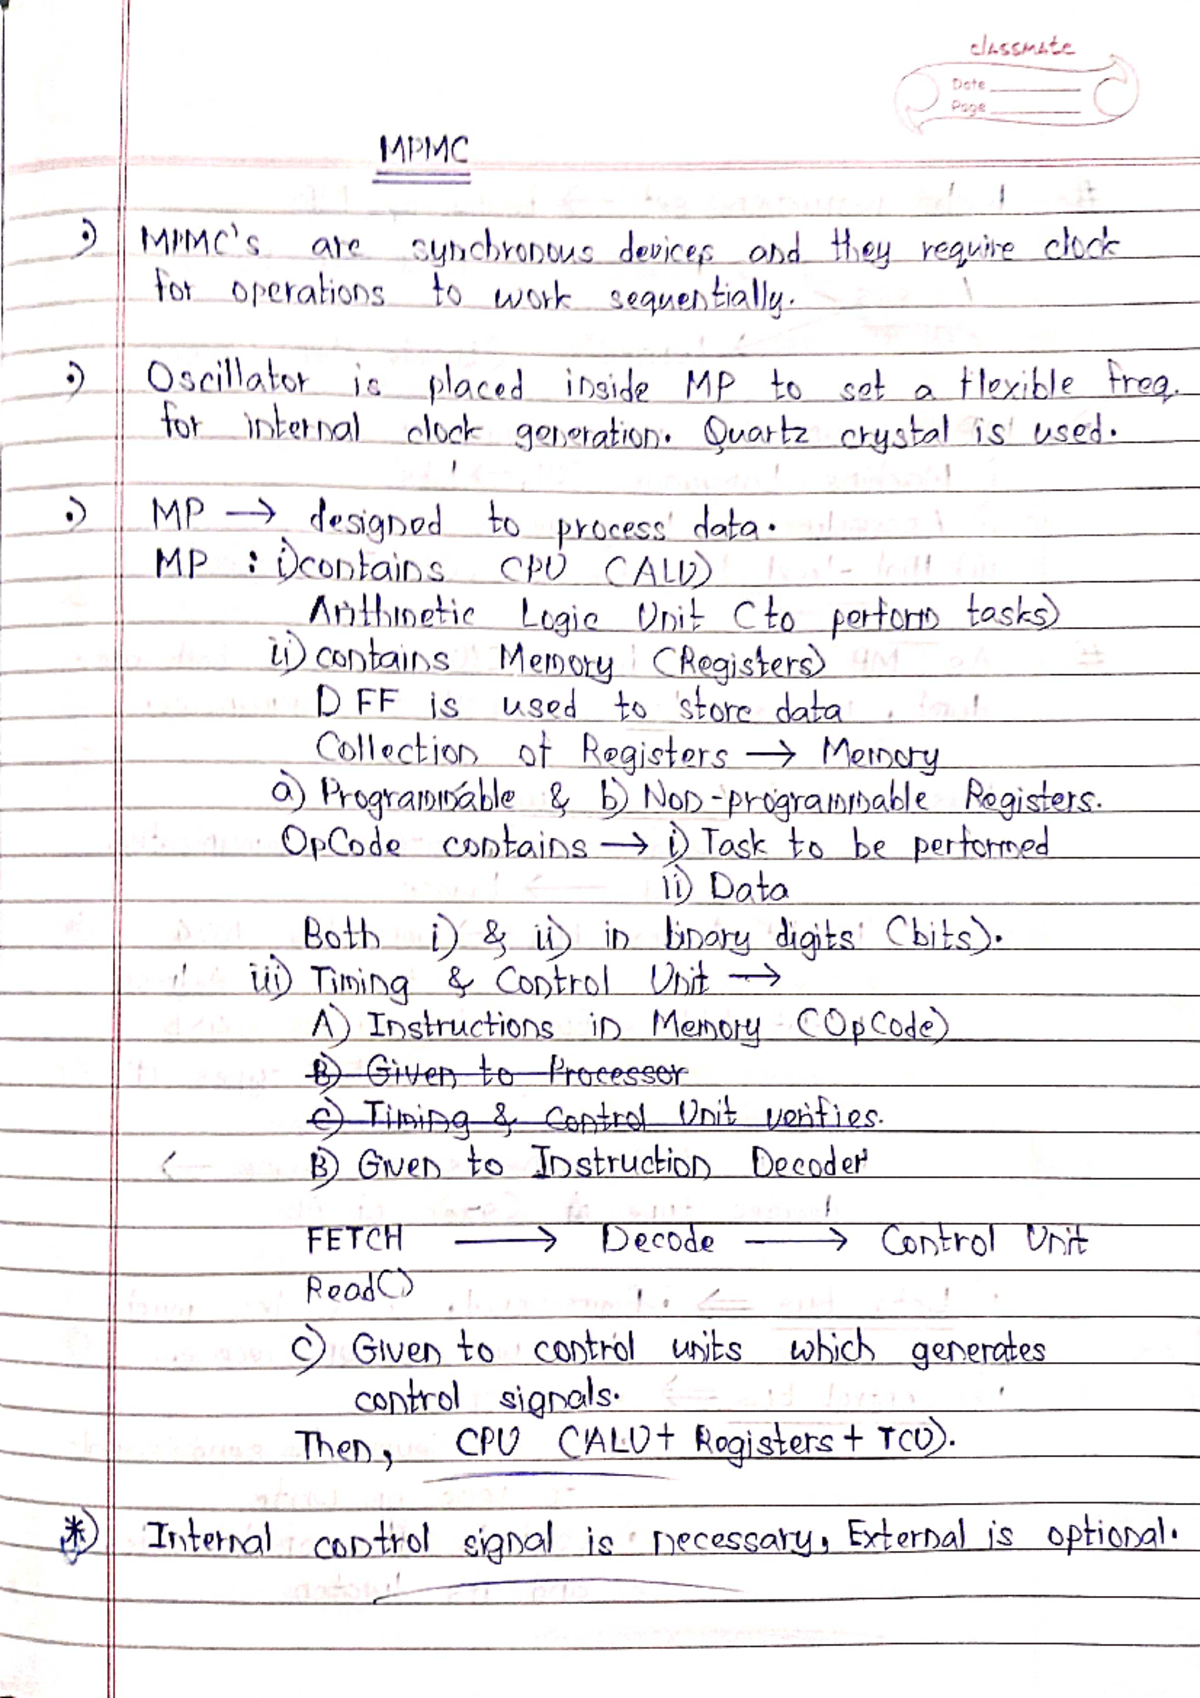 classmate
Date
Page
MPMC
•) MPMC's are synchronous devices and they require clock
for operations to work sequentially.
•) Oscillator is placed inside MP to set a flexible freq.
for internal clock generation. Quartz crystal is used.
•) MP → designed to process data.
MP : i) contains CPU (ALU)
Arithmetic Logic Unit (to perform tasks)
ii) contains Memory (Registers)
D FF is used to store data
Collection of Registers → Memory
a) Programmable & b) Non-programmable Registers.
OpCode contains → i) Task to be performed
ii) Data
Both i) & ii) in binary digits (bits).
iii) Timing & Control Unit →
A) Instructions in Memory (OpCode)
B) Given to Processor
C) Timing & Control Unit verifies.
B) Given to Instruction Decoder
FETCH → Decode → Control Unit
Read()
C) Given to control units which generates
control signals.
Then, CPU (ALU + Registers + TCU).
*) Internal control signal is necessary, External is optional.